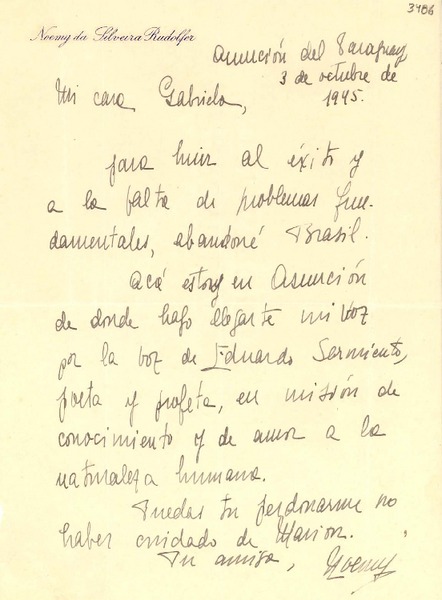 3486
Noemy da Silveira Rudolfer
Asunción del Paraguay
3 de octubre de
1945.
Mi cara Gabriela,
para huir al éxito y
a la falta de problemas fun-
damentales, abandoné Brasil.
Acá estoy en Asunción
de donde hago llegarte mi voz
por la voz de Eduardo Sarmiento,
poeta y profeta, en misión de
conocimiento y de amor a la
naturaleza humana.
Puedas tu perdonarme no
haber cuidado de Marion.
Tu amiga, Noemy